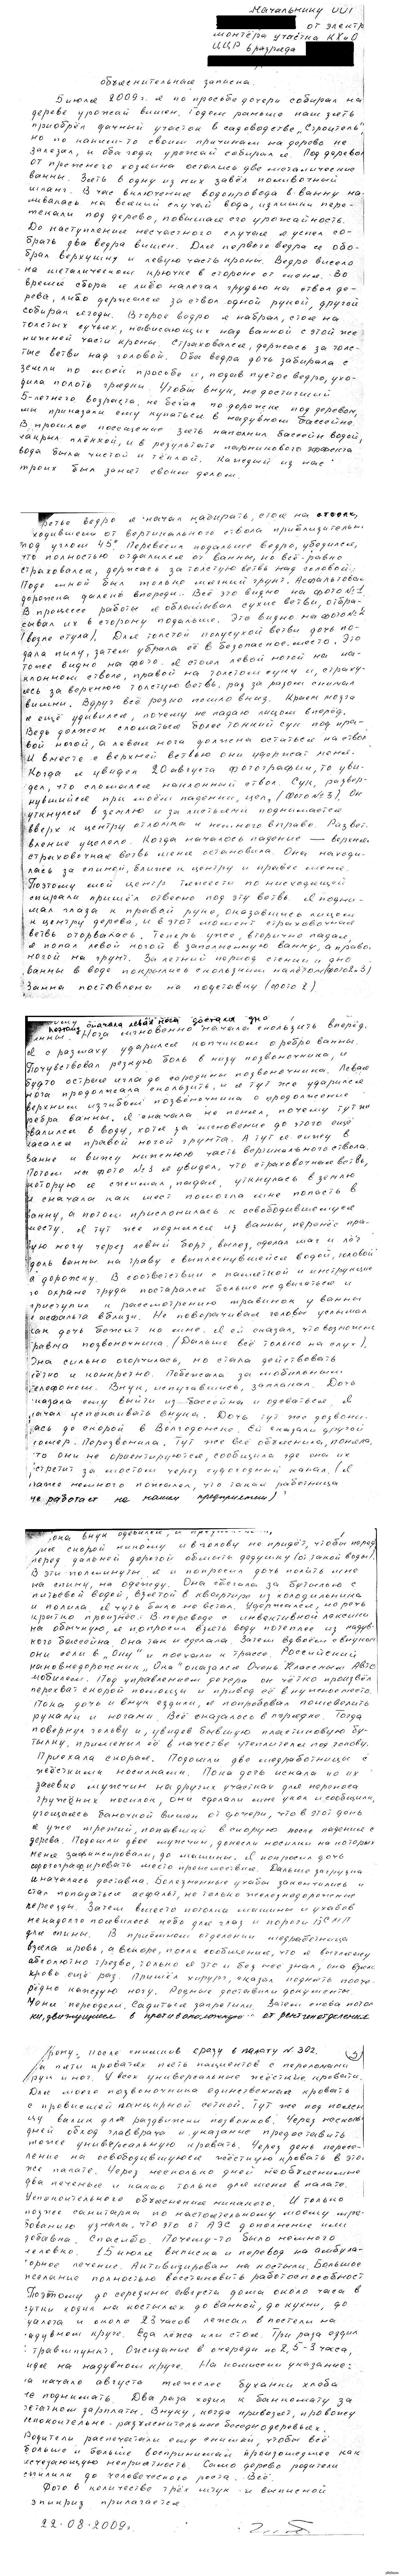 Начальнику ОО1
от электро
монтёра участка КХиО
ЦЦР 6 разряда
объяснительная записка.
5 июля 2009 г. я по просьбе дочери собирал на
дереве урожай вишен. Годом раньше наш зять
приобрёл дачный участок в садоводстве „Строитель",
но по каким-то своим причинам на дерево не
залезал, и оба года урожай собирал я. Под деревом
от прежнего хозяина остались две металлические
ванны. Зять в одну из них завёл поливочный
шланг. В час включения водопровода в ванну на-
ливалась на всякий случай вода, излишки пере-
текали под дерево, повышая его урожайность.
До наступления несчастного случая я успел со-
брать два ведра вишен. Для первого ведра я обо-
брал верхушку и левую часть кроны. Ведро висело
на металлическом крючке в стороне от меня. Во
время сбора я либо налегал грудью на ствол де-
рева, либо держался за ствол одной рукой, другой
собирал ягоды. Второе ведро я набрал, стоя на
толстых сучьях, нависающих над ванной с этой же
нижней части кроны. Страховался, держась за толс-
тые ветви над головой. Оба ведра дочь забирала с
земли по моей просьбе и, подав пустое ведро, ухо-
дила полоть грядки. Чтобы внук, не достигший
5-летнего возраста, не бегал по дорожке под деревом,
мы приказали ему купаться в надувном бассейне.
В прошлое посещение зять наполнил бассейн водой,
накрыл плёнкой, и в результате парникового эффекта
вода была чистой и тёплой. Каждый из нас
троих был занят своим делом.
третье ведро я начал набирать, стоя на стволе,
отходившем от вертикального ствола приблизительно
под углом 45°. Перевесил подальше ведро, убедился,
что полностью отдалился от ванны, но всё равно
страховался, держась за толстую ветвь над головой.
Подо мной был только мягкий грунт. Асфальтовая
дорожка далеко впереди. Всё это видно на фото №1.
В процессе работы я обламывал сухие ветви, отбра-
сывал их в сторону подальше. Это видно на фото №2
(возле стула). Для толстой полусухой ветви дочь по-
дала пилу, затем убрала её в безопасное место. Это
тоже видно на фото. Я стоял левой ногой на на-
клонном стволе, правой на толстом суку и, страху-
ясь за верхнюю толстую ветвь, раз за разом снимал
вишни. Вдруг всё резко пошло вниз. Краем мозга
я ещё удивился, почему не падаю лицом вперёд.
Ведь должен сломаться более тонкий сук под пра-
вой ногой, а левая нога должна остаться на стволе
и вместе с верхней ветвью они удержат меня.
Когда я увидел 20 августа фотографии, то уви-
дел, что сломался наклонный ствол. Сук, развер-
нувшийся при моём падении, цел, (фото №3). Он
уткнулся в землю и за листьями поднимается
вверх к центру отломка и немного вправо. Развет-
вление уцелело. Когда началось падение — верхняя
страховочная ветвь меня остановила. Она находи-
лась за спиной, ближе к центру и правее меня.
Поэтому мой центр тяжести по нисходящей
спирали пришёл отвесно под эту ветвь. Я подни-
мал глаза к правой руке, оказавшись лицом
к центру дерева, и в этот момент страховочная
ветвь оторвалась. Теперь уже, вторично падая,
я попал левой ногой в заполненную ванну, а правой
ногой на грунт. За летний период стенки и дно
ванны в воде покрылись скользким налётом (фото 2,3)
Ванна поставлена на подставку (фото 2)
поэтому сначала левая нога достала дно
ванны. Нога мгновенно начала скользить вперёд.
Я с размаху ударился копчиком о ребро ванны.
Почувствовал резкую боль в низу позвоночника, и
будто острая игла до середины позвоночника. Левая
нога продолжала скользить, и я тут же ударился
верхним изгибом позвоночника о продолжение
ребра ванны. Я сначала не понял, почему тут же
свалился в воду, хотя за мгновение до этого ещё
касался правой ногой грунта. А тут я сижу в
ванне и вижу нижнюю часть вертикального ствола.
Потом на фото №3 я увидел, что страховочная ветвь,
которую я сжимал, падая, уткнулась в землю
и сначала как шест помогла мне попасть в
ванну, а потом прислонилась к освободившемуся
месту. Я тут же поднялся из ванны, перенёс пра-
вую ногу через левый борт, вылез, сделал шаг и лёг
вдоль ванны на траву с выплеснувшейся водой, головой
на дорожку. В соответствии с памяткой и инструкцией
по охране труда постарался больше не двигаться и
приступил к рассмотрению травинок у ванны
и асфальта вблизи. Не поворачивая головы услышал
как дочь бежит ко мне. Я ей сказал, что возможен
травма позвоночника. (Дальше всё только на слух).
Она сильно огорчилась, но стала действовать
чётко и конкретно. Побежала за мобильным
телефоном. Внук, испугавшись, заплакал. Дочь
сказала ему выйти из бассейна и одеваться. Я
начал успокаивать внука. Дочь тут же дозвони-
лась до скорой в Волгодонске. Ей сказали другой
номер. Перезвонила. Тут же всё объяснила, поняла,
что они не ориентируются, сообщила где она их
встретит за мостом через судоходный канал. (Я
даже немного пожалел, что такая работница
не работает на нашем предприятии)
она внук оделся, и
в скорой никому и в голову не придёт, чтобы перед
перед дальней дорогой обмыть дедушку (от такой воды).
В эти полминуты я и попросил дочь полить мне
на спину, на одежду. Она сбегала за бутылью с
питьевой водой, взятой в квартире из холодильника
и полила. Я чуть было не встал. Удержался, но речь
кратко произнёс. В переводе с инвективной лексики
на обычную, я попросил взять воду потеплее из надув-
ного бассейна. Она так и сделала. Затем вдвоём с внуком
они сели в „Оку" и поехали к трассе. Российский
Авто
мобилем. Под управлением дочери он чётко произвёл
перехват скорой помощи и привод её в нужное место.
Пока дочь и внук ездили, я попробовал пошевелить
руками и ногами. Всё оказалось в порядке. Тогда
повернул голову и, увидев бывшую пластиковую бу-
тылку, применил её в качестве утеплителя под голову.
Приехала скорая. Подошли две медработницы с
жёсткими носилками. Пока дочь искала по их
заявке мужчин на других участках для переноса
гружёных носилок, они сделали мне укол и сообщили,
угощаясь баночкой вишен от дочери, что в этот день
я уже третий, попавший в скорую после падения с
дерева. Подошли двое мужчин, донесли носилки на которых
меня зафиксировали, до машины. Я попросил дочь
сфотографировать место происшествия. Дальше загрузка
и началась доставка. Болезненные ухабы закончились и
стал попадаться асфальт, но только железнодорожные
переезды. Затем вместо потолка машины и ухабов
ненадолго появилось небо для глаз и пороги БСМП
для спины. В приёмном отделении медработница
взяла кровь, а вскоре, после сообщения, что я выгляжу
абсолютно трезво, только я это и без неё знал, она взяла
кровь ещё раз. Пришёл хирург, сказал поднять пооче-
рёдно каждую ногу. Родные доставили документы.
Меня переодели. Садиться запретили. Затем снова пото-
ки, движущиеся в противоположную от рентгенотделения
сторону, после снимков сразу в палату № 302.
На пяти кроватях пять пациентов с переломами
рук и ног. У всех универсальные жёсткие кровати.
Для моего позвоночника единственная кровать
с провисшей панцирной сеткой. Тут же под поясни-
цу валик для раздвижки позвонков. Через несколько
дней обход главврача и указание предоставить
тоже универсальную кровать. Через день пересе-
ление на освободившуюся жёсткую кровать в этой
же палате. Через несколько дней необъяснимые
два печенья и какао только для меня в палате.
Успокоительного объяснения никакого. И только
позже санитарка по настоятельному моему тре-
бованию узнала, что это от АЭС дополнение или
добавка. Спасибо. Почему-то было немного
неловко. 15 июля выписка и перевод на амбула-
торное лечение. Активизирован на костылях. Большое
желание полностью восстановить работоспособность
Поэтому до середины августа дома около часа в
сутки ходил на костылях до ванной, до кухни, до
туалета и около 23 часов лежал в постели на
надувном круге. Еда лёжа или стоя. Три раза ездил
в травмпункт. Ожидание в очереди по 2,5-3 часа,
сидя на надувном круге. На комиссии указание:
на начало августа тяжелее буханки хлеба
не поднимать. Два раза ходил к банкомату за
остатком зарплаты. Внуку, когда привозят, провожу
успокоительно-разъяснительные беседы о деревьях.
Родители распечатали ему снимки, чтобы всё
больше и больше воспринимал произошедшее как
исчезающую неприятность. Само дерево родители
спилили до человеческого роста. Всё.
Фото в количестве трёх штук и выписной
эпикриз прилагается.
22.08.2009г.